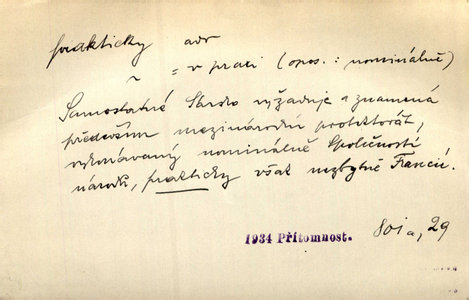 prakticky adv
= v praxi (opos.: nominálně)
Samostatné Sársko vyžaduje a znamená
především mezinárodní protektorát,
vykonávaný nominálně Společností
národů, prakticky však nezbytně Francií.
1934 Přítomnost. 801a, 29